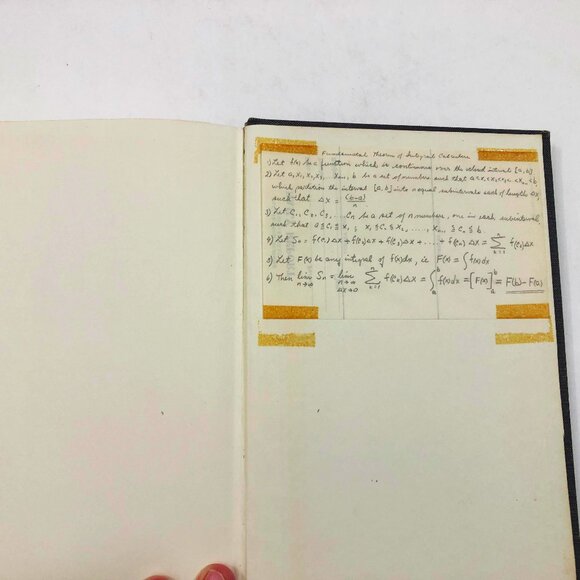 Fundamental Theorem of Integral Calculus
1) Let f(x) be a function which is continuous over the closed interval [a, b]
2) Let a, x₁, x₂, x₃, xₙ₋₁, b be a set of numbers such that a<x₁<x₂<x₃<xₙ₋₁<b,
which partition the interval [a, b] into n equal subintervals each of length Δx,
such that Δx = (b-a)/n
3) Let C₁, C₂, C₃, ... Cₙ be a set of n numbers, one in each subinterval
such that a ≦ C₁ ≦ x₁ ; x₁ ≦ C₂ ≦ x₂, ...., xₙ₋₁ ≦ Cₙ ≦ b
4) Let Sₙ = f(C₁)Δx + f(C₂)Δx + f(C₃)Δx + .... + f(Cₙ)Δx = ∑ₖ₌₁ⁿ f(Cₖ)Δx
5) Let F(x) be any integral of f(x)dx, ie F(x) = ∫f(x)dx
6) Then lim n→∞ Sₙ = lim n→∞ Δx→0 ∑ₖ₌₁ⁿ f(Cₖ)Δx = ∫ₐᵇ f(x)dx = [F(x)]ₐᵇ = F(b)-F(a)